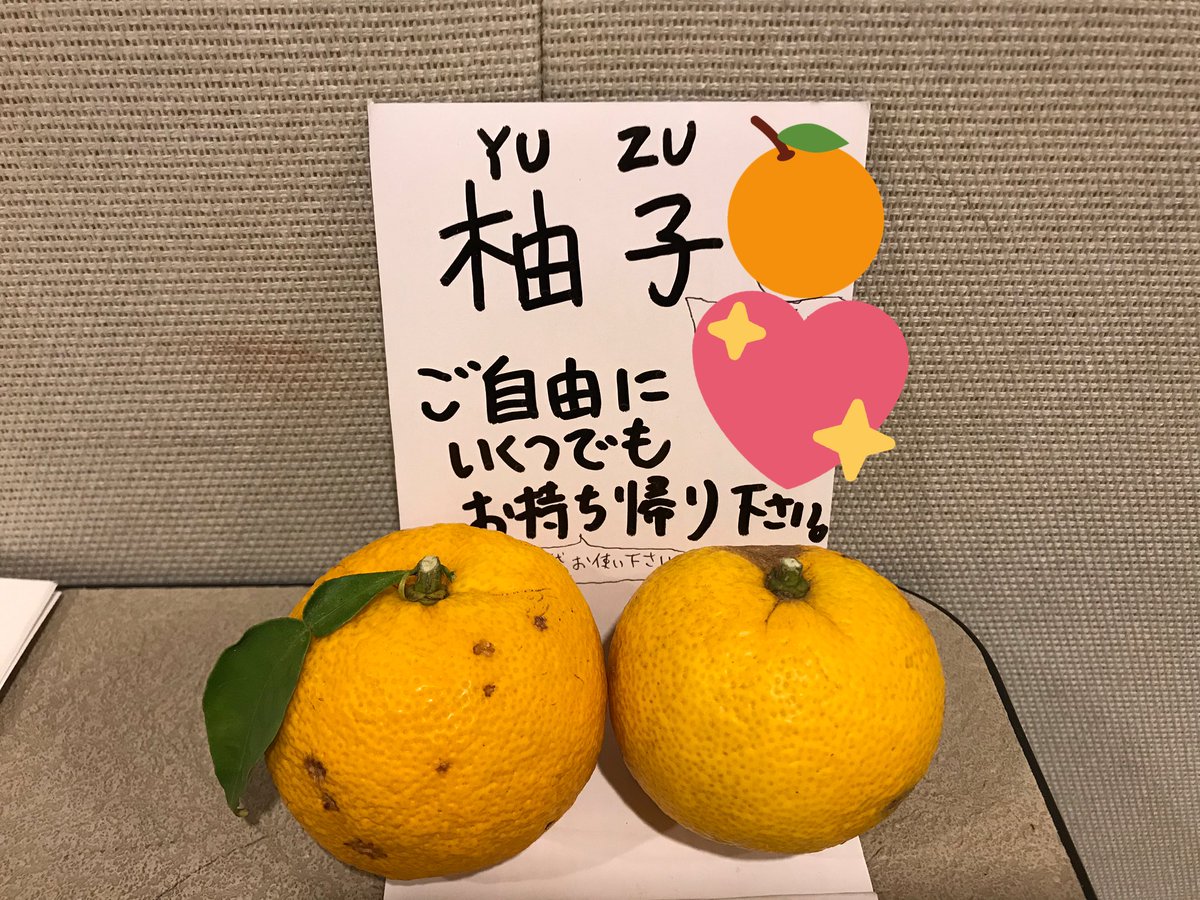 YU ZU
柚子
ご自由に
いくつでも
お持ち帰り下さい。
お使い下さい